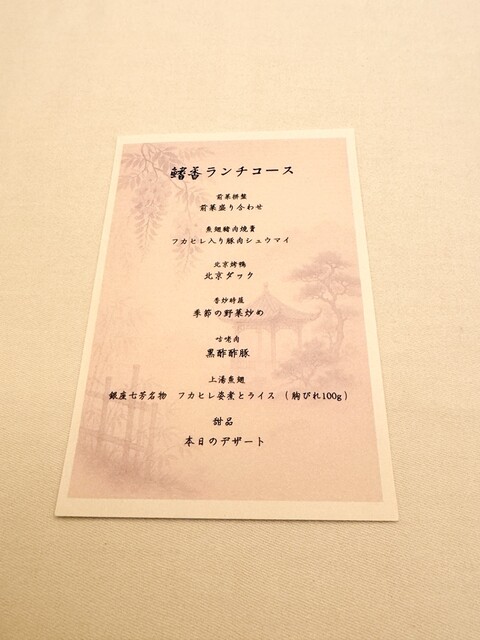 鱶善ランチコース
前菜拼盤
前菜盛り合わせ
魚翅豬肉燒賣
フカヒレ入り豚肉シュウマイ
北京烤鴨
北京ダック
香炒時蔬
季節の野菜炒め
咕咾肉
黒酢酢豚
上湯魚翅
銀座七芳名物 フカヒレ姿煮とライス (胸びれ100g)
甜品
本日のデザート